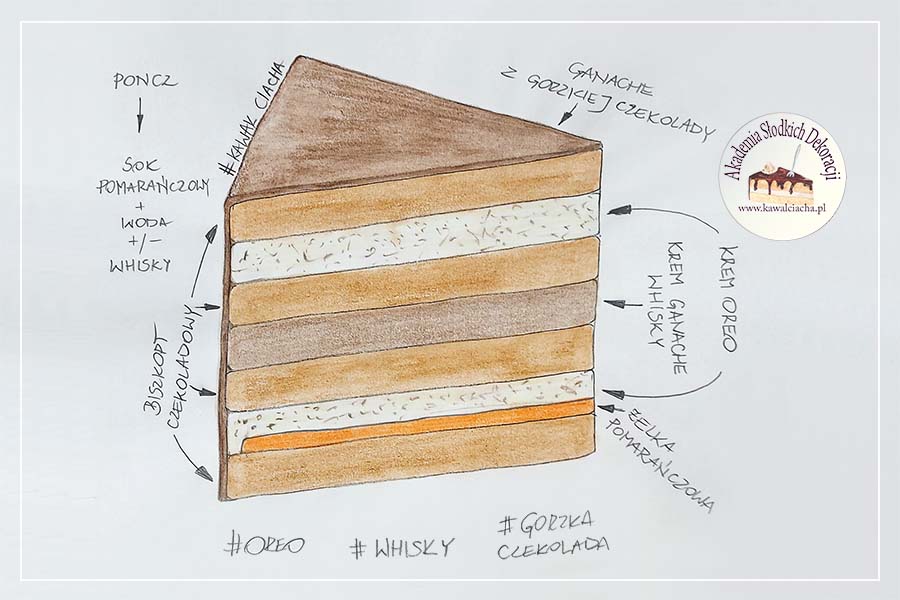 PONCZ
SOK
POMARAŃCZOWY
+
WODA
+/-
WHISKY
#KAWAŁ CIACHA
GANACHE
Z GORZKIEJ CZEKOLADY
Akademia Słodkich Dekoracji
www.kawalciacha.pl
BISZKOPT
CZEKOLADOWY
KREM OREO
KREM GANACHE
WHISKY
ŻELKA
POMARAŃCZOWA
#OREO
# WHISKY
# GORZKA
CZEKOLADA